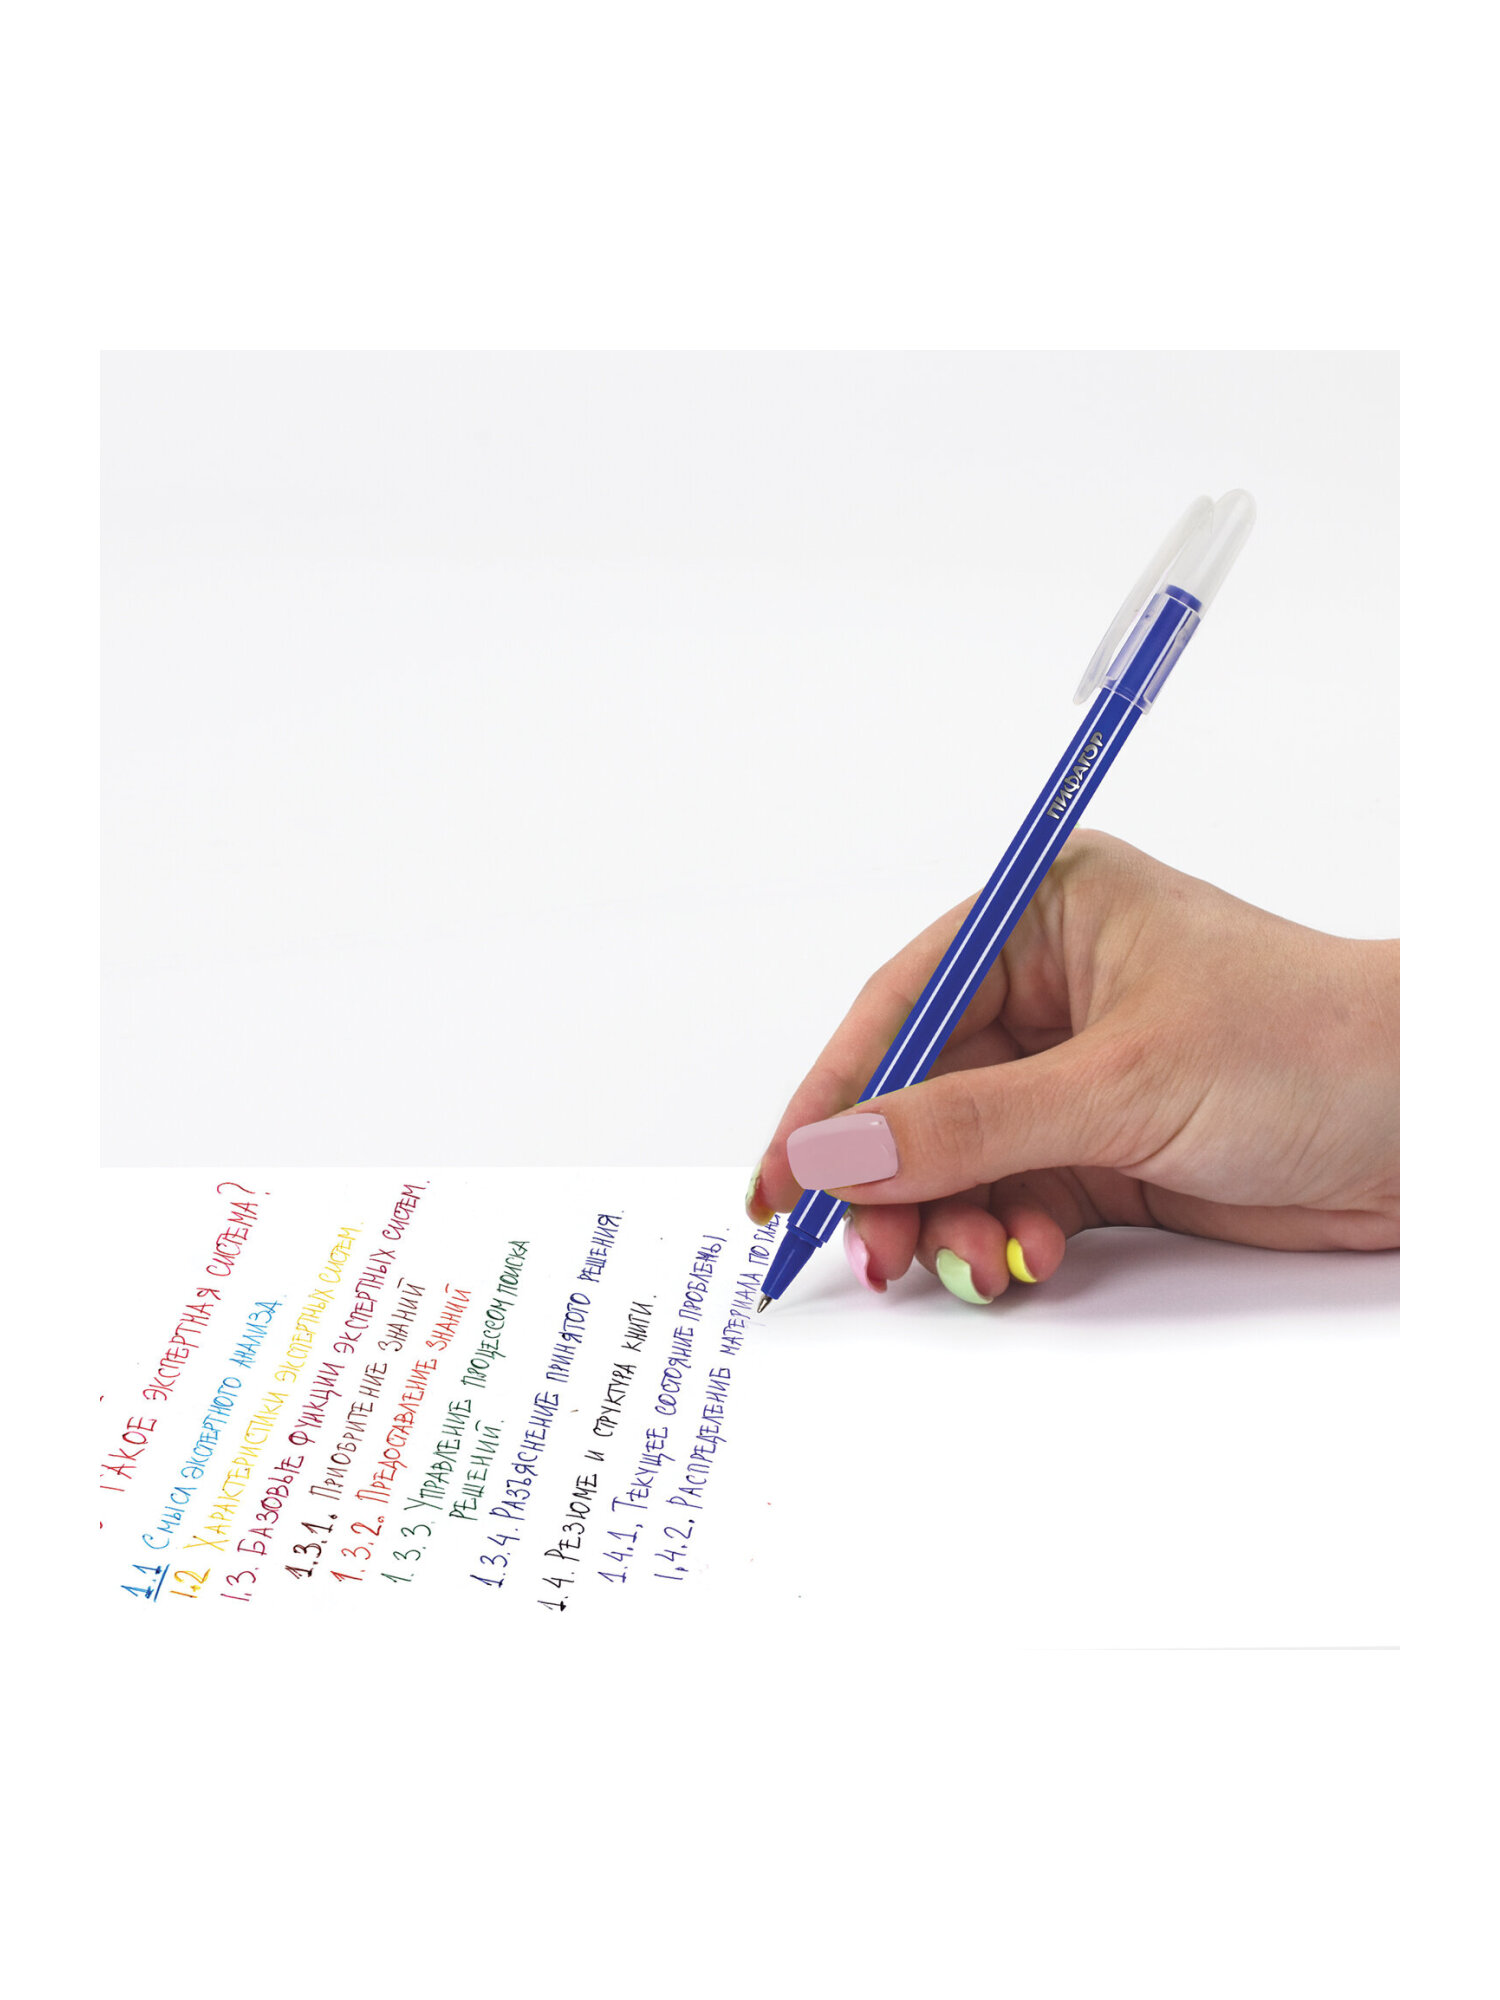 ПИФАГОР
ТАКОЕ ЭКСПЕРТНАЯ СИСТЕМА?
1.1 СМЫСЛ ЭКСПЕРТНОГО АНАЛИЗА.
1.2 ХАРАКТЕРИСТИКИ ЭКСПЕРТНЫХ СИСТЕМ.
1.3. БАЗОВЫЕ ФУНКЦИИ ЭКСПЕРТНЫХ СИСТЕМ.
1.3.1. ПРИОБРИТЕНИЕ ЗНАНИЙ
1.3.2. ПРЕДОСТАВЛЕНИЕ ЗНАНИЙ
1.3.3. УПРАВЛЕНИЕ ПРОЦЕССОМ ПОИСКА
РЕШЕНИЙ.
1.3.4. РАЗЪЯСНЕНИЕ ПРИНЯТОГО РЕШЕНИЯ.
1.4. РЕЗЮМЕ И СТРУКТУРА КНИГИ.
1.4.1. ТЕКУЩЕЕ СОСТОЯНИЕ ПРОБЛЕМЫ.
1.4.2. РАСПРЕДЕЛЕНИЕ МАТЕРИАЛА ПО